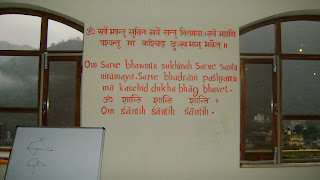 ॐ सर्वे भवन्तु सुखिनः सर्वे सन्तु निरामयाः। सर्वे भद्राणि
पश्यन्तु मा कश्चिद् दुःखभाग् भवेत्॥
Om Sarve bhavantu sukhinah Sarve Santu
niramaya. Sarve bhadrani pashyantu
ma kaschid dukha bhag bhavet.
ॐ शान्तिः शान्तिः शान्तिः॥
Om śantih śantih śantih.